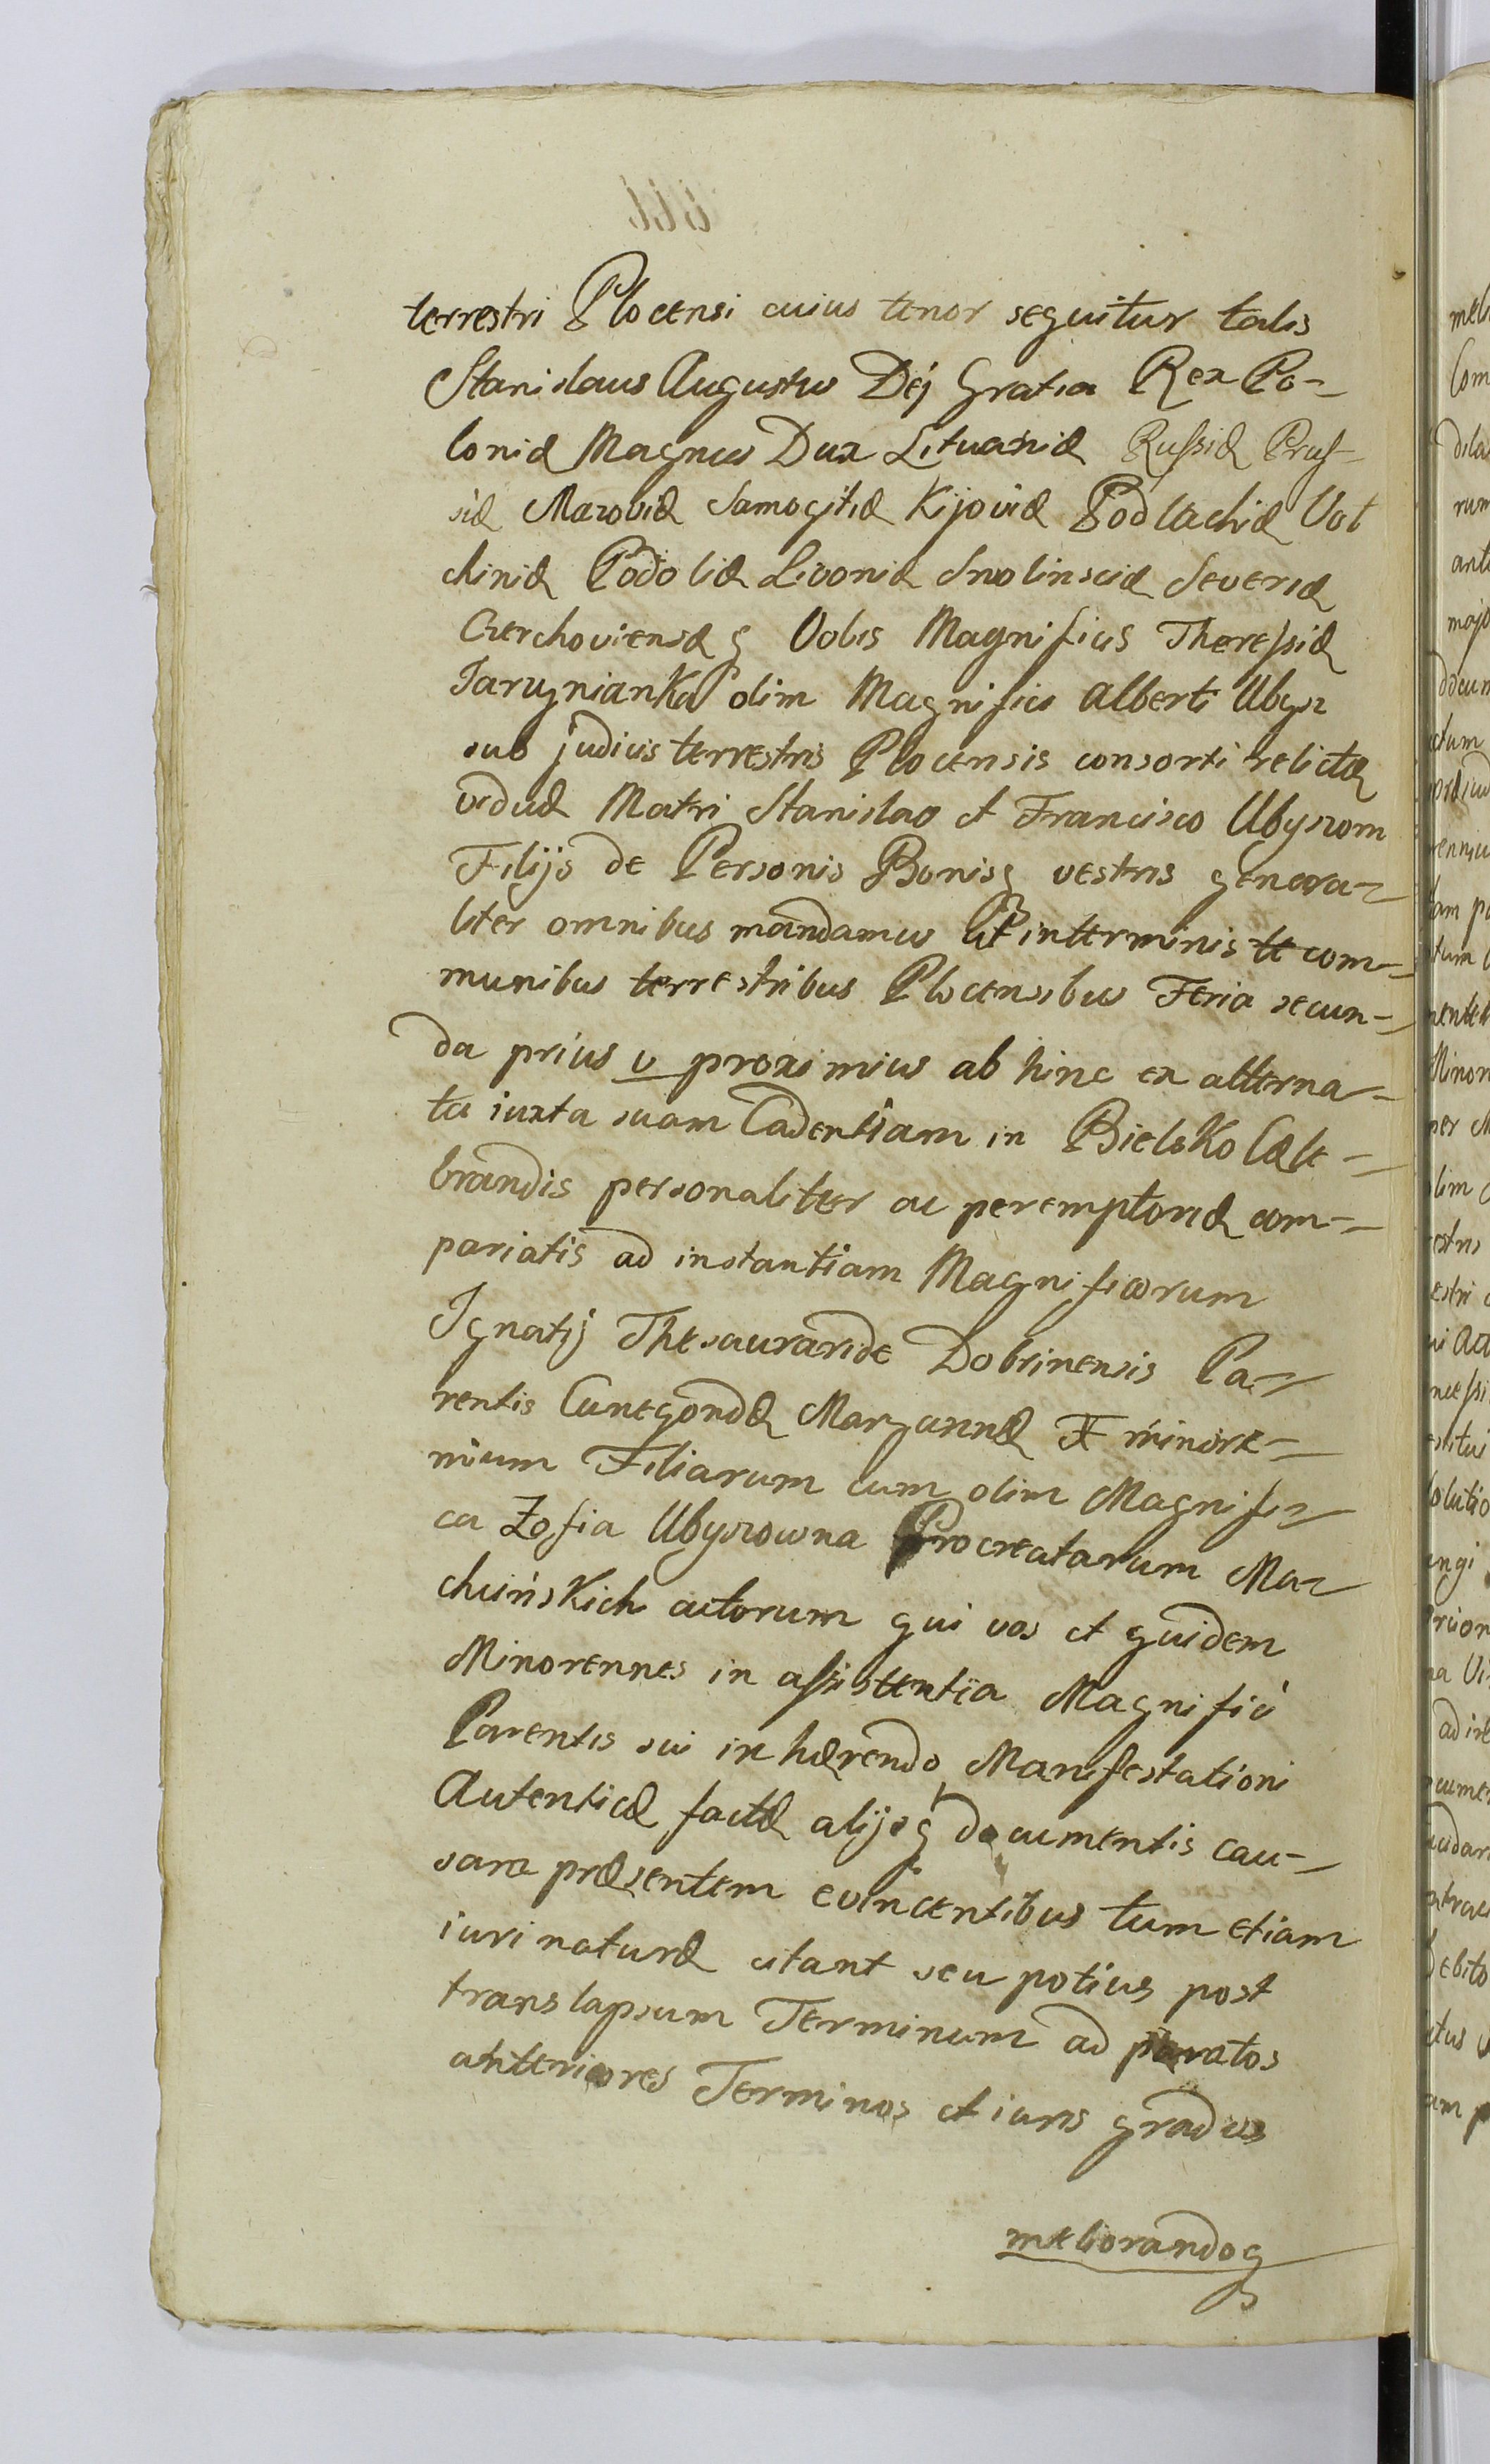 terrestri Plocensi cuius tenor sequitur talis
Stanislaus Augustus Dej Gratia Rex Po-
loniæ Magnus Dux Lituaniæ Rußiæ Pruß-
siæ Mazoviæ Samogitiæ Kijoviæ Podlachiæ Vol
chiniæ Podoliæ Livoniæ Smolinsciæ Severiæ
Czerchoviensiæq Vobis Magnificis Thereßiæ
olim Magnifici Alberti Ubysz
sub judicis terrestris Plocensis consorti relictæ
viduæ Matri Stanislao et Francisco Ubyszom
Filijs de Personis Bonisq vestris genera-
liter omnibus mandamus ut interminis te com-
munibus terrestribus Plocensibus Feria secun-
da prius v proximius ab hinc ex alterna-
ta iuxta suam Cadentiam in Bielsko Cæle-
brandis personaliter ac peremptoriæ com-
pariatis ad instantiam Magnificorum
Ignatij Thesauraride Dobrinensis Pa-
rentis Cunegondæ Maryannæ minore-
nium Filiarum cum olim Magnifi-
ca Zofia Ubyszowna Procreatarum Ma-
chcińskich actorum qui vos et quidem
Minorennes in aßistentia Magnifici
Parentis sui inhærendo Manifestationi
Autenticæ factæ alijsq documentis cau-
sam præsentem evincentibus tum etiam
iuri naturæ citant seu potius post
translapsum Terminum ad paratos
anteriores Terminos et iuris gradus
meliorandoq